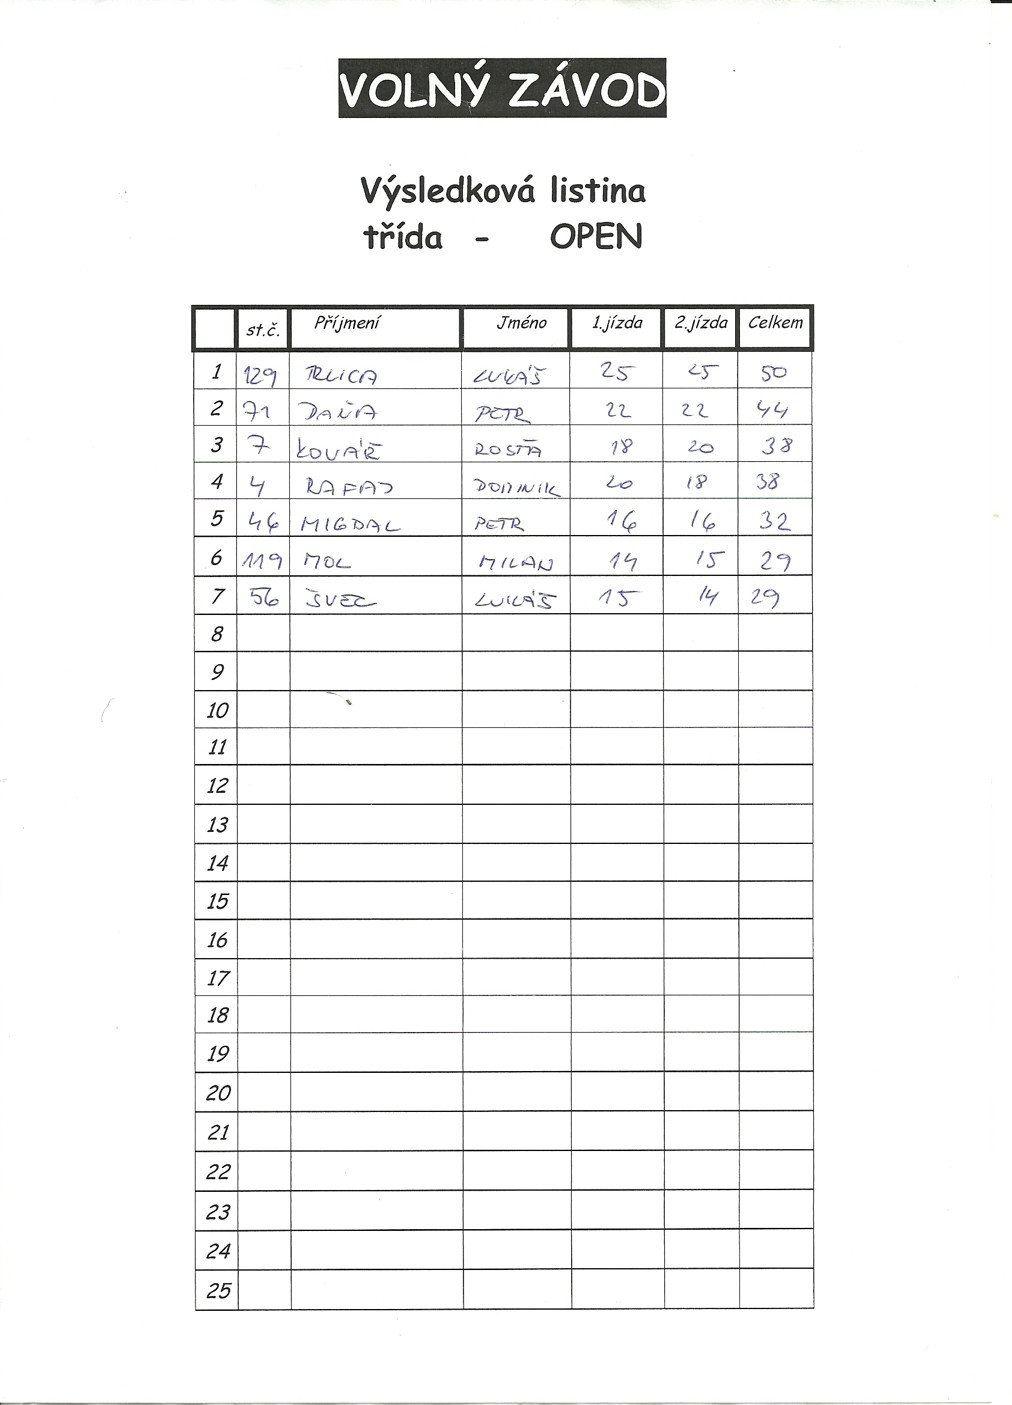 VOLNÝ ZÁVOD
Výsledková listina
třída - OPEN
st.č. Příjmení Jméno 1.jízda 2.jízda Celkem
1 129 TRLICA LUKÁŠ 25 25 50
2 71 DAŇA PETR 22 22 44
3 7 KOVÁŘ ROSŤA 18 20 38
4 4 RAFAJ DOMINIK 20 18 38
5 46 MIGDAL PETR 16 16 32
6 119 MOL MILAN 14 15 29
7 56 ŠVEC LUKÁŠ 15 14 29
8
9
10
11
12
13
14
15
16
17
18
19
20
21
22
23
24
25